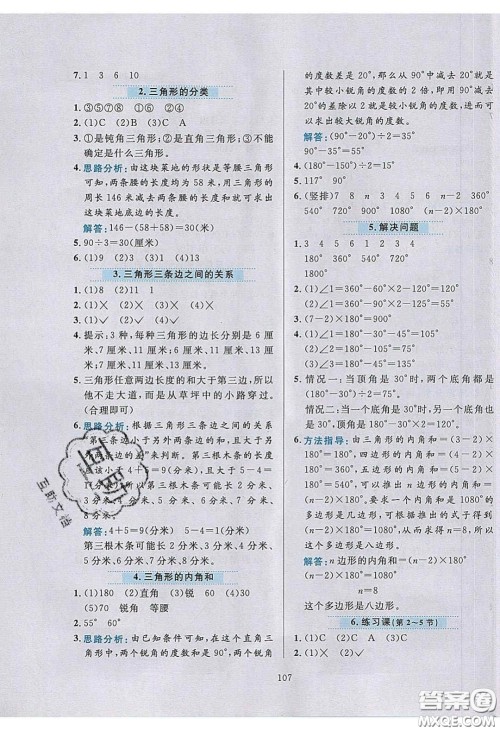 7. 1 3 6 10
2. 三角形的分类
1. ③⑤⑦⑧ ①⑥ ②④
2. (1)C (2)A
3. ①是钝角三角形;②是直角三角形;③不能
确定是什么三角形。
4. 思路分析:由这块菜地的形状是等腰三角形
可知,两条腰的长度均为 58 米,用三角形的
周长 146 米减去两条腰的长度,可求出这块
菜地底边的长度。
解答:146-(58+58)=30(米)
5. 90÷3=30(厘米)
3. 三角形三条边之间的关系
1. (1)8 (2)11
2. (1)× (2)× (3)×
4. 提示:3 种,每种三角形的边长分别是 6 厘
米、7 厘米、11 厘米,6 厘米、11 厘米、13 厘
米;7 厘米、11 厘米、13 厘米。
5. 三角形任意两边长度的和大于第三边,所以
不走水泥路,而是从草坪中的小路穿过。
(合理即可)
6. 思路分析:根据三角形三条边之间的关系
“第三条边的长度小于两条边的和,且大于
两条边的差”来判断,第三根木条的长度
应该小于 4+5=9(分米),且大于 5-4=1
(分米),所以第三根木条可能长 2 分米、3 分
米、4 分米、5 分米、6 分米、7 分米、8 分米。
解答:4+5=9(分米) 5-4=1(分米)
第三根木条可能长 2 分米、3 分米、4 分米、
5 分米、6 分米、7 分米、8 分米。
4. 三角形的内角和
1. (1)180 (2)直角 (3)锐角 180 (4)30
(5)70 锐角 等腰
2. 55° 60°
3. 思路分析:由已知条件可知,在这个直角三
角形中,两个锐角的度数和是 90°,两个锐角
的度数差是 20°,那么从 90°中减去 20°就是
其中较小锐角的度数的 2 倍,即用 90°减去
20°的差除以 2 就是较小锐角的度数,进而可
以求出较大锐角的度数。
解答:(90°-20°)÷2=35°
90°-35°=55°
4. (180°-150°)÷2=15°
5. 117° 90°
6. (竖排) 7 8 n 3 4 5 6 n-2 360°
540° 720° 900° 1080° (n-2)×180°
5. 解决问题
1. 4 5 6 8 2 3 4 6 360 540 720
1080
2. (1)∠1=360°-60°×2-120°=120°
(2)∠1=360°-90°-90°-70°=110°
3. (1)× (2)× (3)×
4. (1)∠1=180°-30°-45°=105°
(2)∠1=180°-(180°-100°)-45°=55°
(3)∠1=180°-(180°-110°)-50°=60°
5. 情况一:当顶角是 30°时,两个底角都是
(180°-30°)÷2=75°。
情况二:当一个底角是 30°时,另一个底角也
是 30°,顶角是 180°-30°×2=120°。
6. 方法指导:由三角形的内角和=(3-2)×
180°=180°,四边形的内角和=(4-2)×
180°=360°,五边形的内角和=(5-2)×
180°=540°,可推出 n 边形的内角和=(n-2)
×180°,可根据推出的式子得到(n-2)×
180°=1080°,即可推出一个内角和是 1080°
的多边形是八边形。
解答:n 边形的内角和=(n-2)×180°
(n-2)×180°=1080°
n=8
这个多边形是八边形。
6. 练习课(第 2~5 节)
1. (1)C (2)C (3)A (4)C
2. (1)× (2)×
107
互助文档
答案圈
MXQE.COM